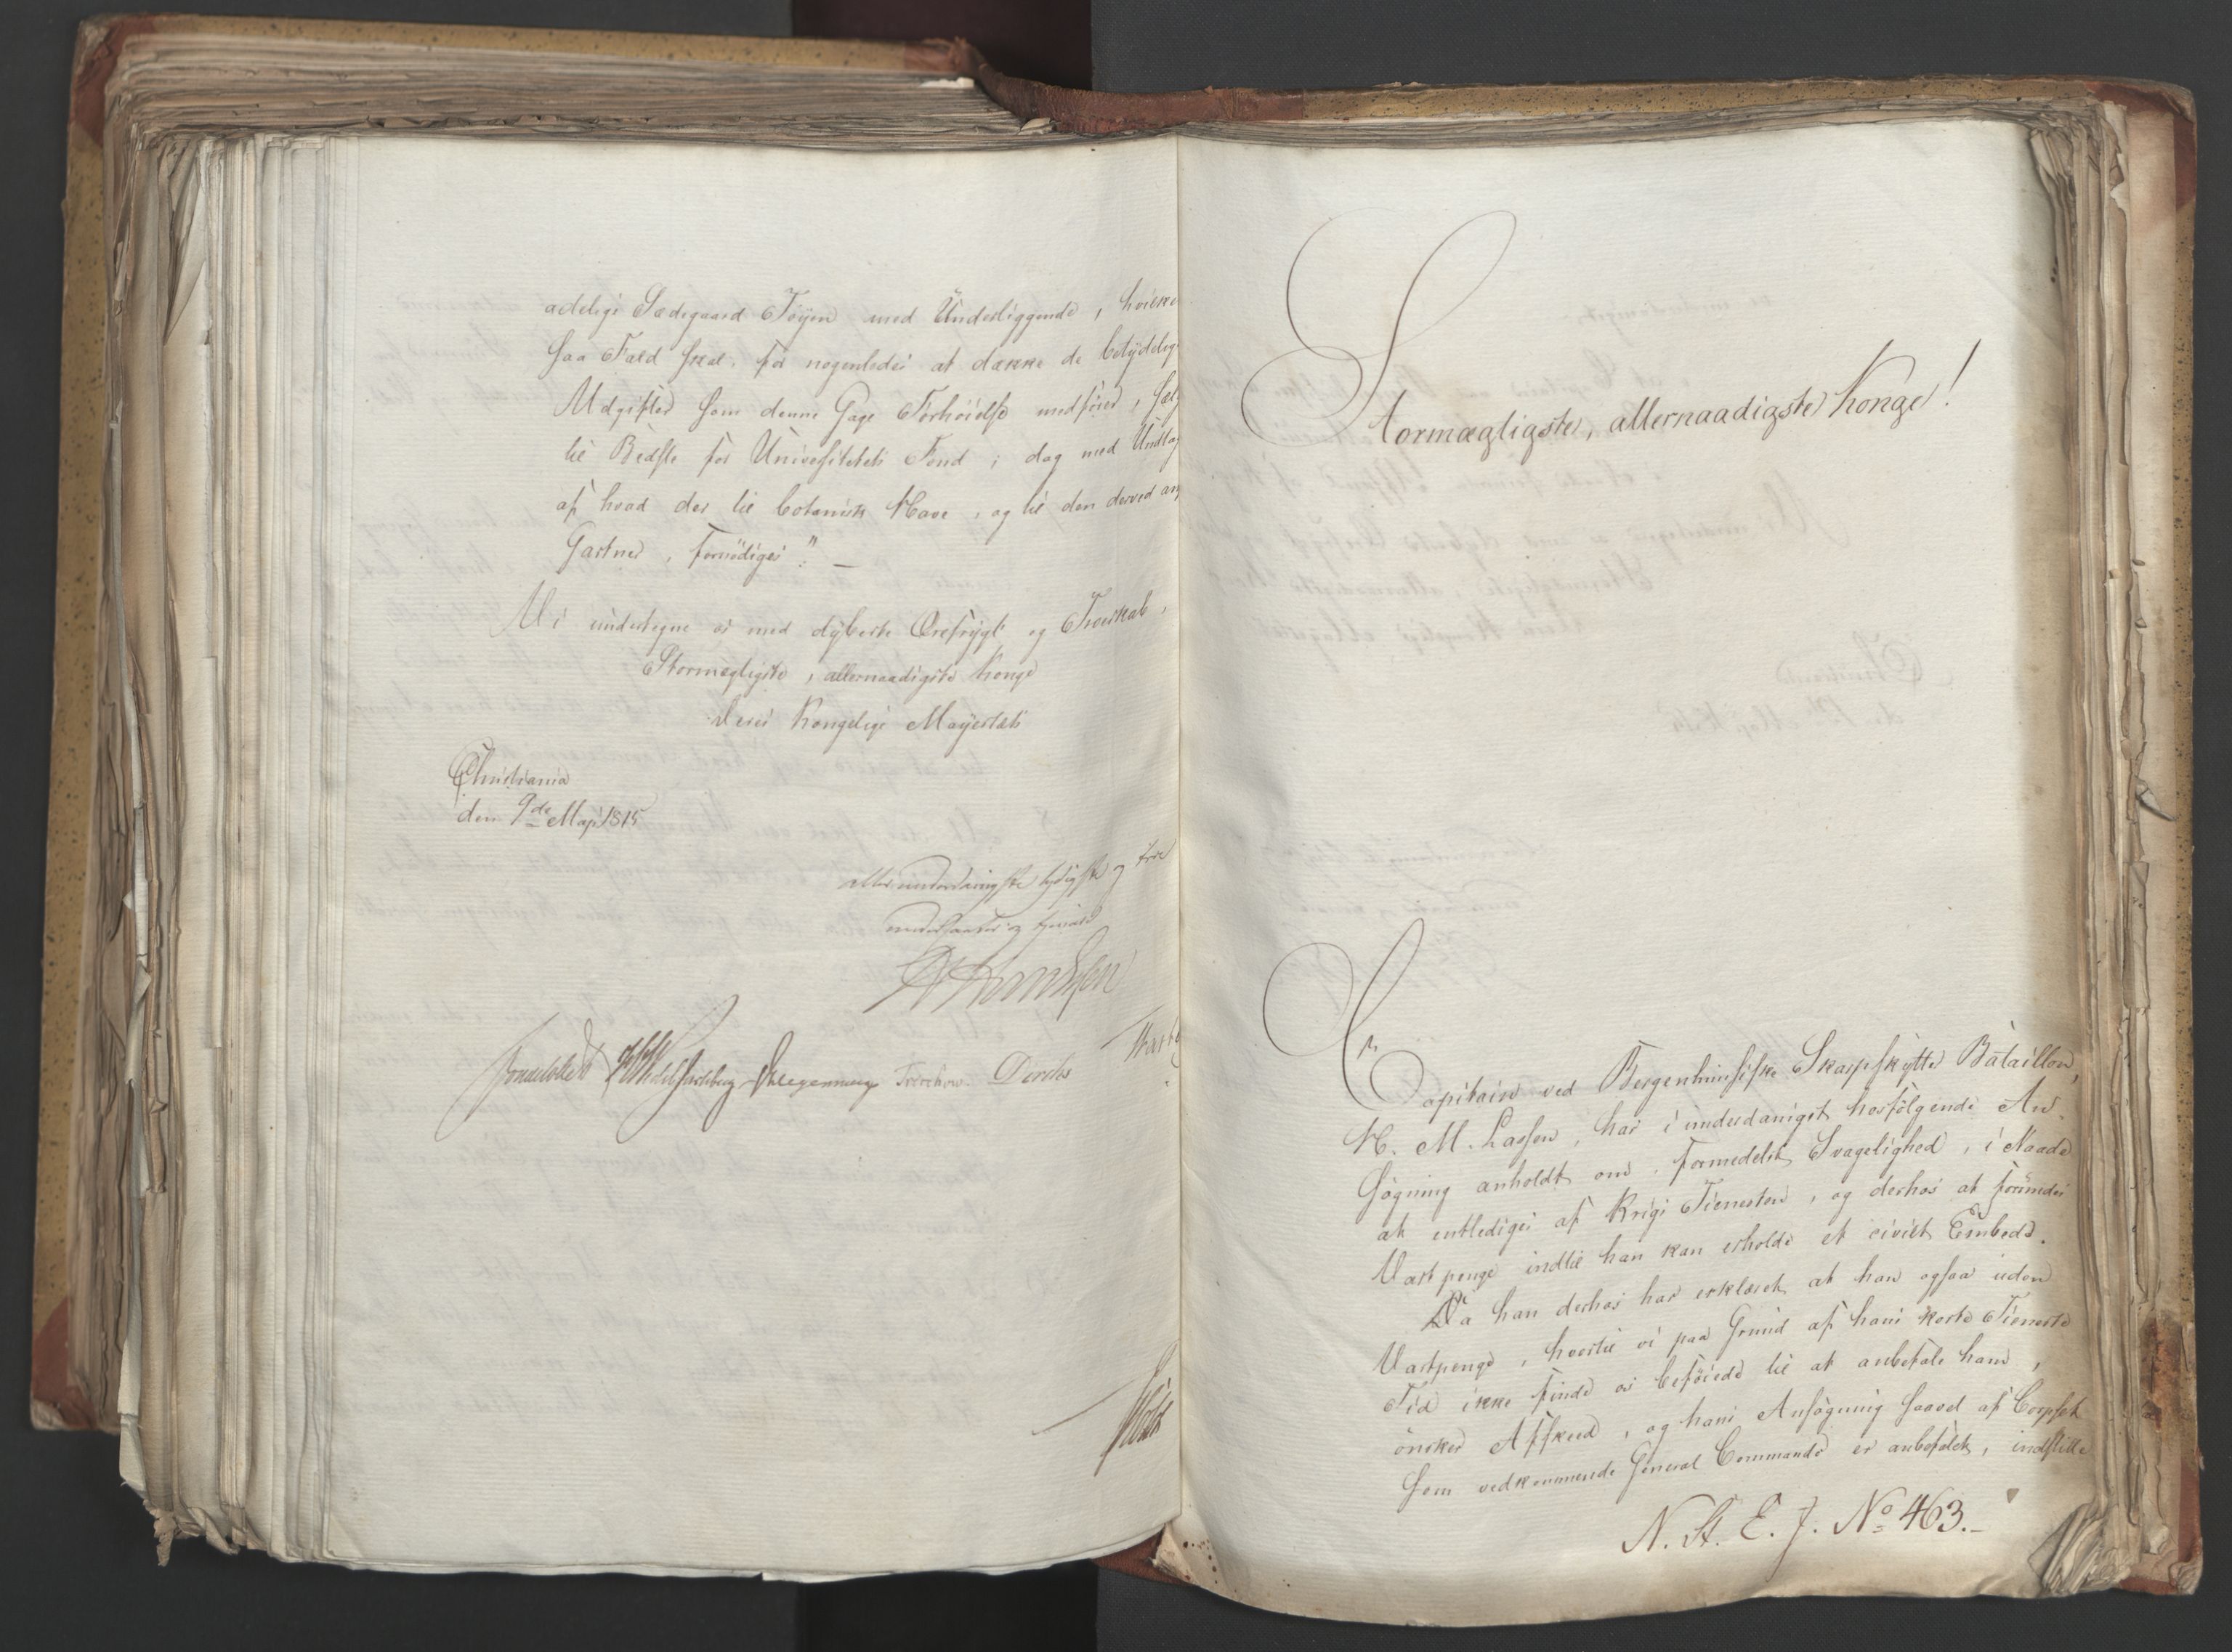 adelige Sædegaard Töyen med Underliggende, hvilke
saa Fald skal, for nogenledes at dække de betydelig
Udgifter som denne Gage Forhöielse medförer, sælg
til Bedste for Universitetets Fond; dog med Undtag
af hvad der til botanisk Have, og til den derved an
Gartner, fornödiges". —
Vi undertegne os med dybeste Ærefrygt og Troeskab,
Stormægtigste, allernaadigste Konge
Deres Kongelige Mayestæts
Christiania
den 9de May 1815
allerunderdanigste lydigste og troe
undersaatter og tjenere
Sommerhjelm
Wedel Jarlsberg Treschow. Diriks
Holst
Stormægtigste, allernaadigste Konge!
Capitain ved Bergenhuusiske Skarpskytte Bataillon,
H. M. Lassen, har i underdanigst hosfölgende An-
sögning anholdt om, formedelst Svagelighed, i Naade
at entlediges af Krigs Tienesten, og derhos at forundes
Vartpenge indtil han kan erholde et civilt Embede.
Da han derhos har erklæret at han ogsaa uden
Vartpenge, hvortil vi paa Grund af hans korte Tieneste
Tid ikke finde os beföiede til at anbefale ham,
önsker Afskeed, og hans Ansögning saavel af Corpset
som vedkommende General Commando er anbefalet, indstille
N. St. E. J. No 463.-